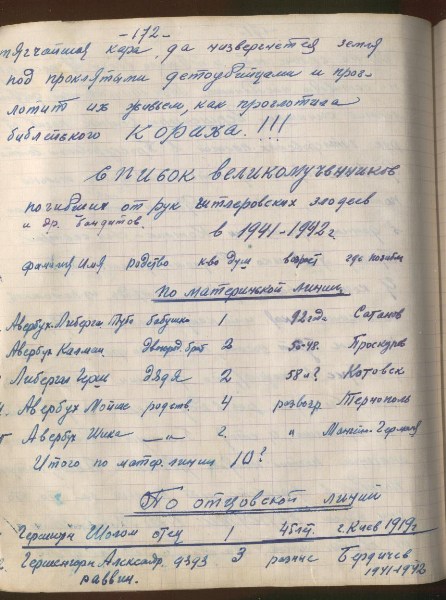 -172-
тягчайшая кара, да низвергнется земля
под проклятыми детоубийцами и прог-
лотит их живьем, как проглотила
библейского Кораха.!!!
Список великомучеников
погибших от рук гитлеровских злодеев
и др. бандитов.
в 1941-1942г
фамилия Имя родство к-во душ возраст где погибли
По материнской линии
Авербух-Либерган бабушка 1 92 года Сатанов
Авербух Калман двоюрод. брат 2 50-48. Проскуров
Либерган Герш дядя 2 58 и? Котовск
4. Авербух Мойше родств. 4 разв Тернополь
5 Авербух Шика —„— 2. „
Итого по матер. линии 10?
По отцовской линий
Гершнгорн Шолом отец 1 45 лет. г. Киев 1919г
Гершенгорн Александр. дядя 3 разные Бердичев
раввин. 1941-1942